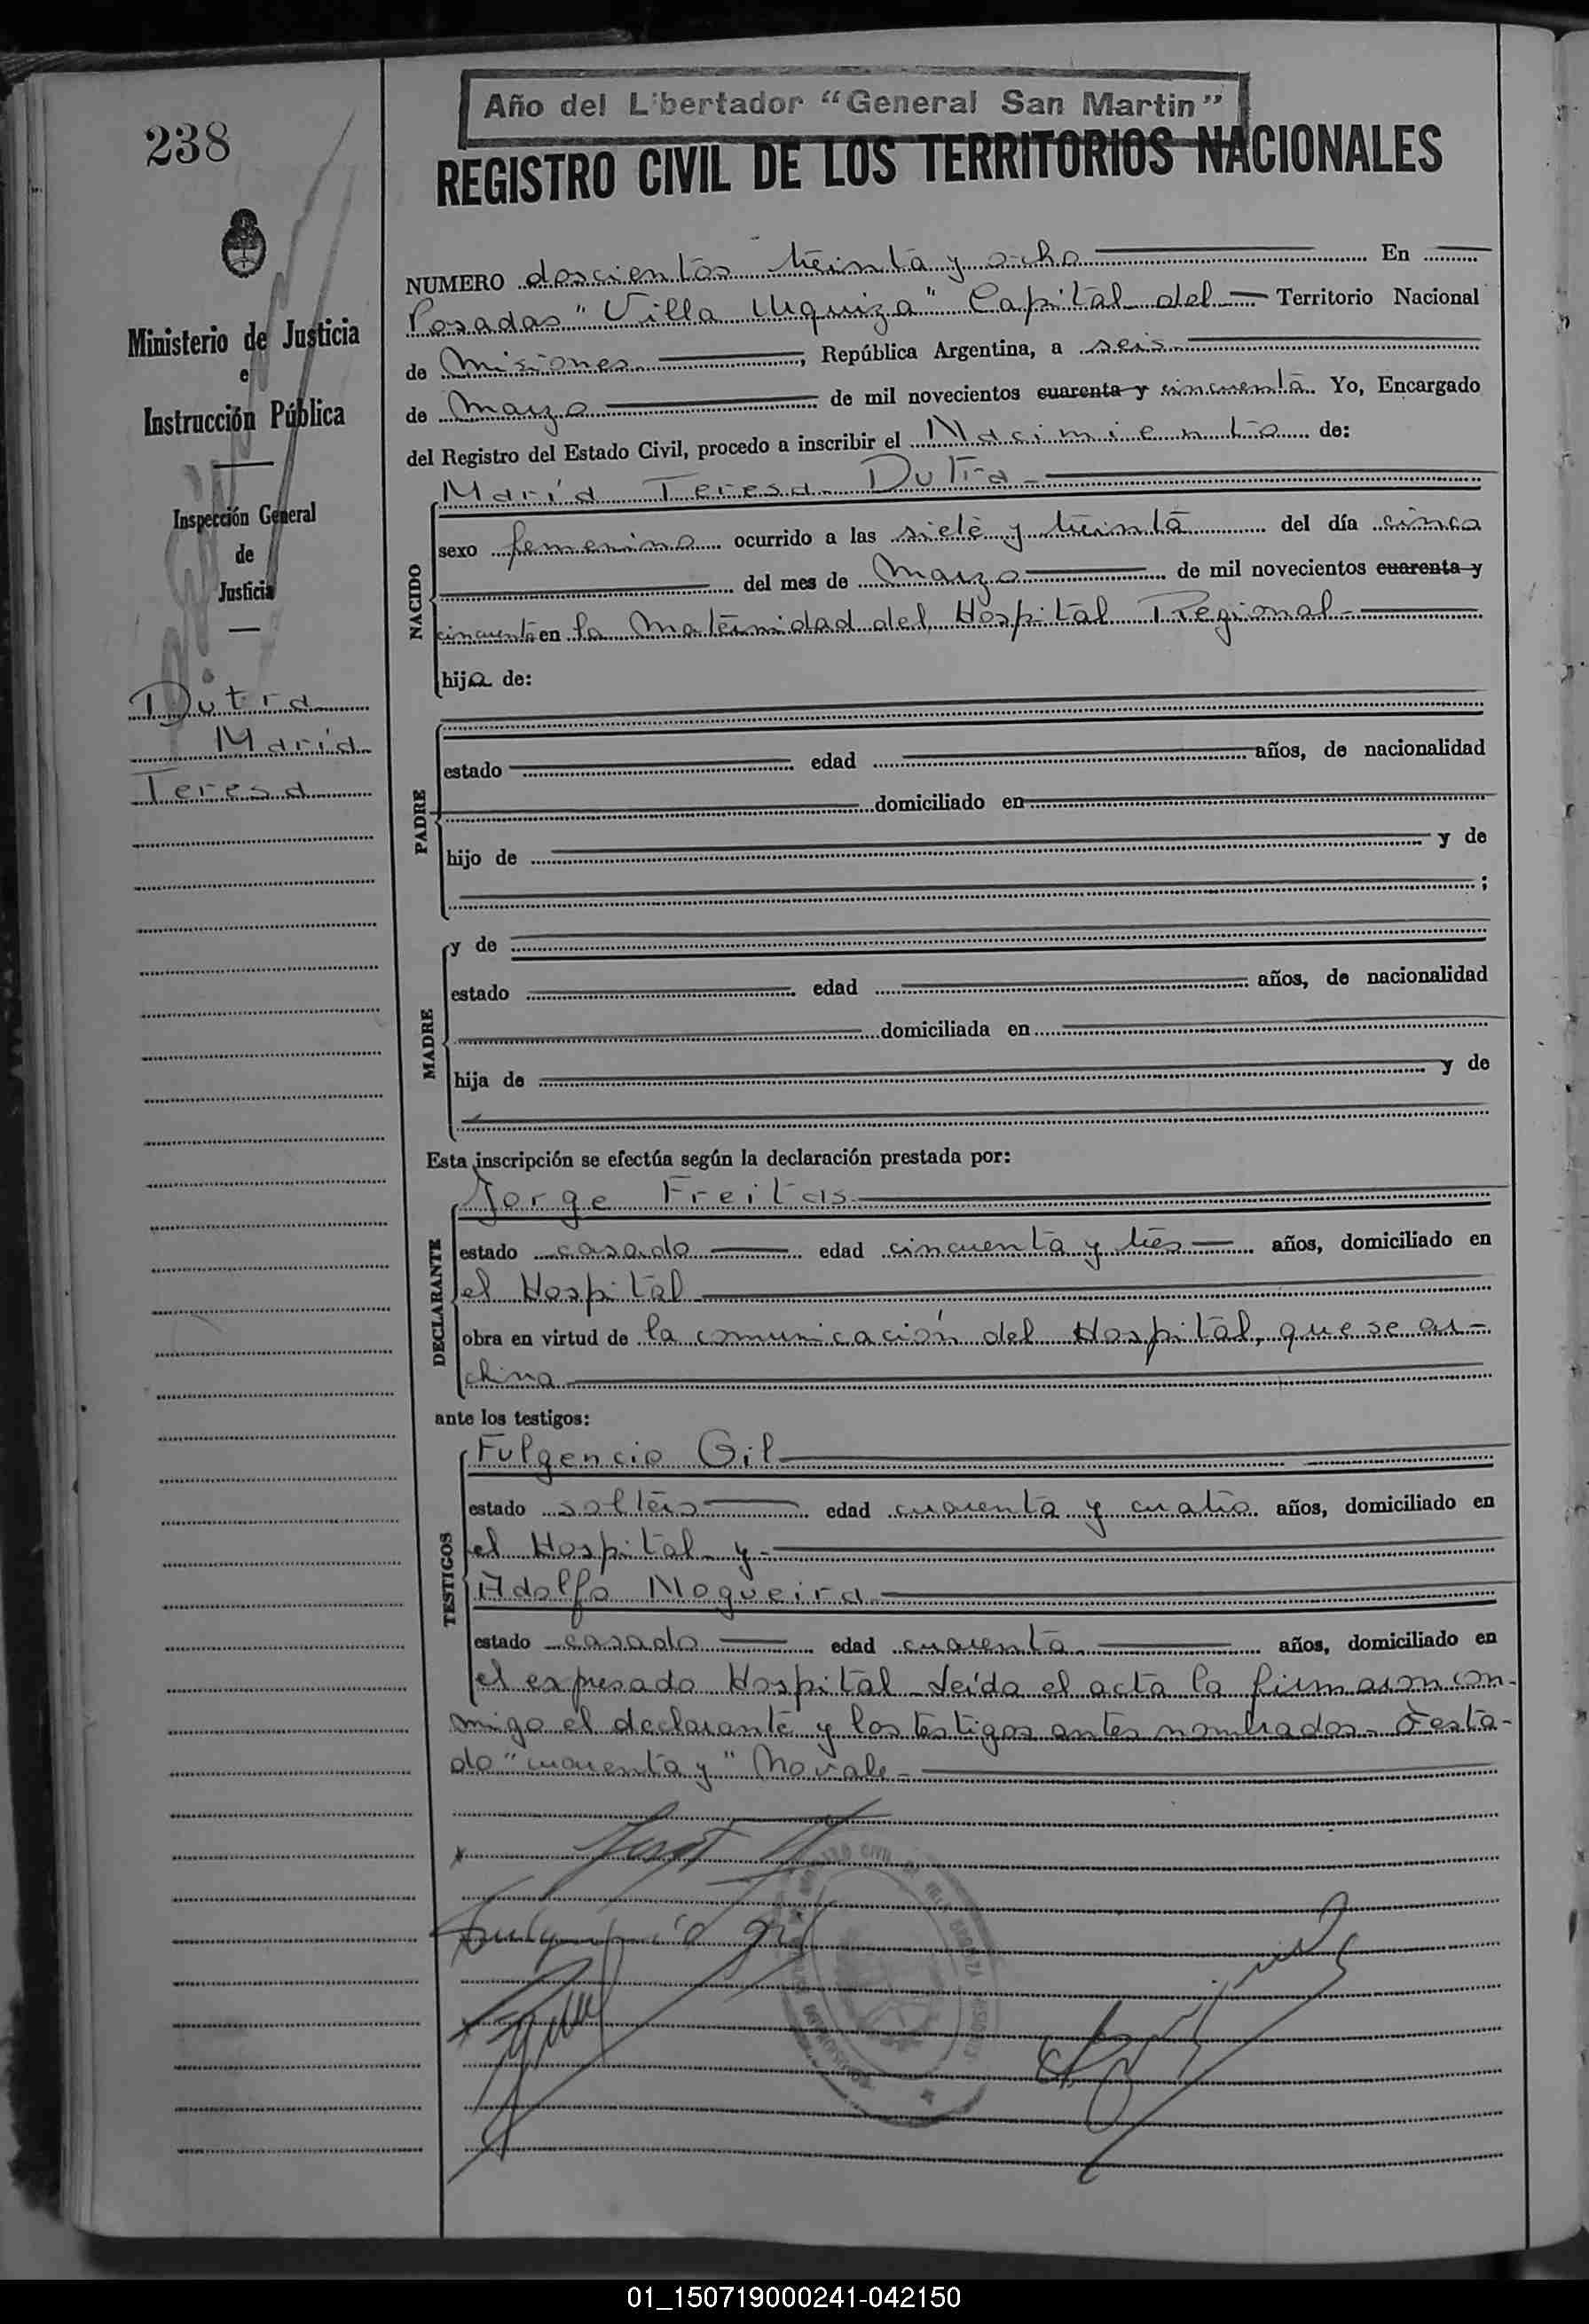 Año del Libertador “General San Martin”
238
REGISTRO CIVIL DE LOS TERRITORIOS NACIONALES
Ministerio de Justicia
e
Instrucción Pública
Inspección General
de
Justicia
Dutra
María
Teresa
NUMERO doscientos treinta y ocho En
Posadas "Villa Urquiza" Capital del Territorio Nacional
de Misiones, República Argentina, a seis
de Marzo de mil novecientos cuarenta y cincuenta. Yo, Encargado
del Registro del Estado Civil, procedo a inscribir el Nacimiento de:
NACIDO
María Teresa Dutra
sexo femenino ocurrido a las siete y treinta del día cinco
del mes de Marzo de mil novecientos cuarenta y
cincuenta en la Maternidad del Hospital Regional
hija de:
PADRE
estado edad años, de nacionalidad
domiciliado en
hijo de y de
;
MADRE
y de
estado edad años, de nacionalidad
domiciliada en
hija de y de
Esta inscripción se efectúa según la declaración prestada por:
DECLARANTE
Jorge Freitas
estado casado edad cincuenta y tres años, domiciliado en
el Hospital
obra en virtud de la comunicación del Hospital, que se ar-
chiva
ante los testigos:
TESTIGOS
Fulgencio Gil
estado soltero edad cuarenta y cuatro años, domiciliado en
el Hospital y
Adolfo Nogueira
estado casado edad cuarenta años, domiciliado en
el expresado Hospital. Leída el acta la firmaron con-
migo el declarante y los testigos antes nombrados. Testa-
do "cuarenta y" No vale
Fulgencio Gil
01_150719000241-042150